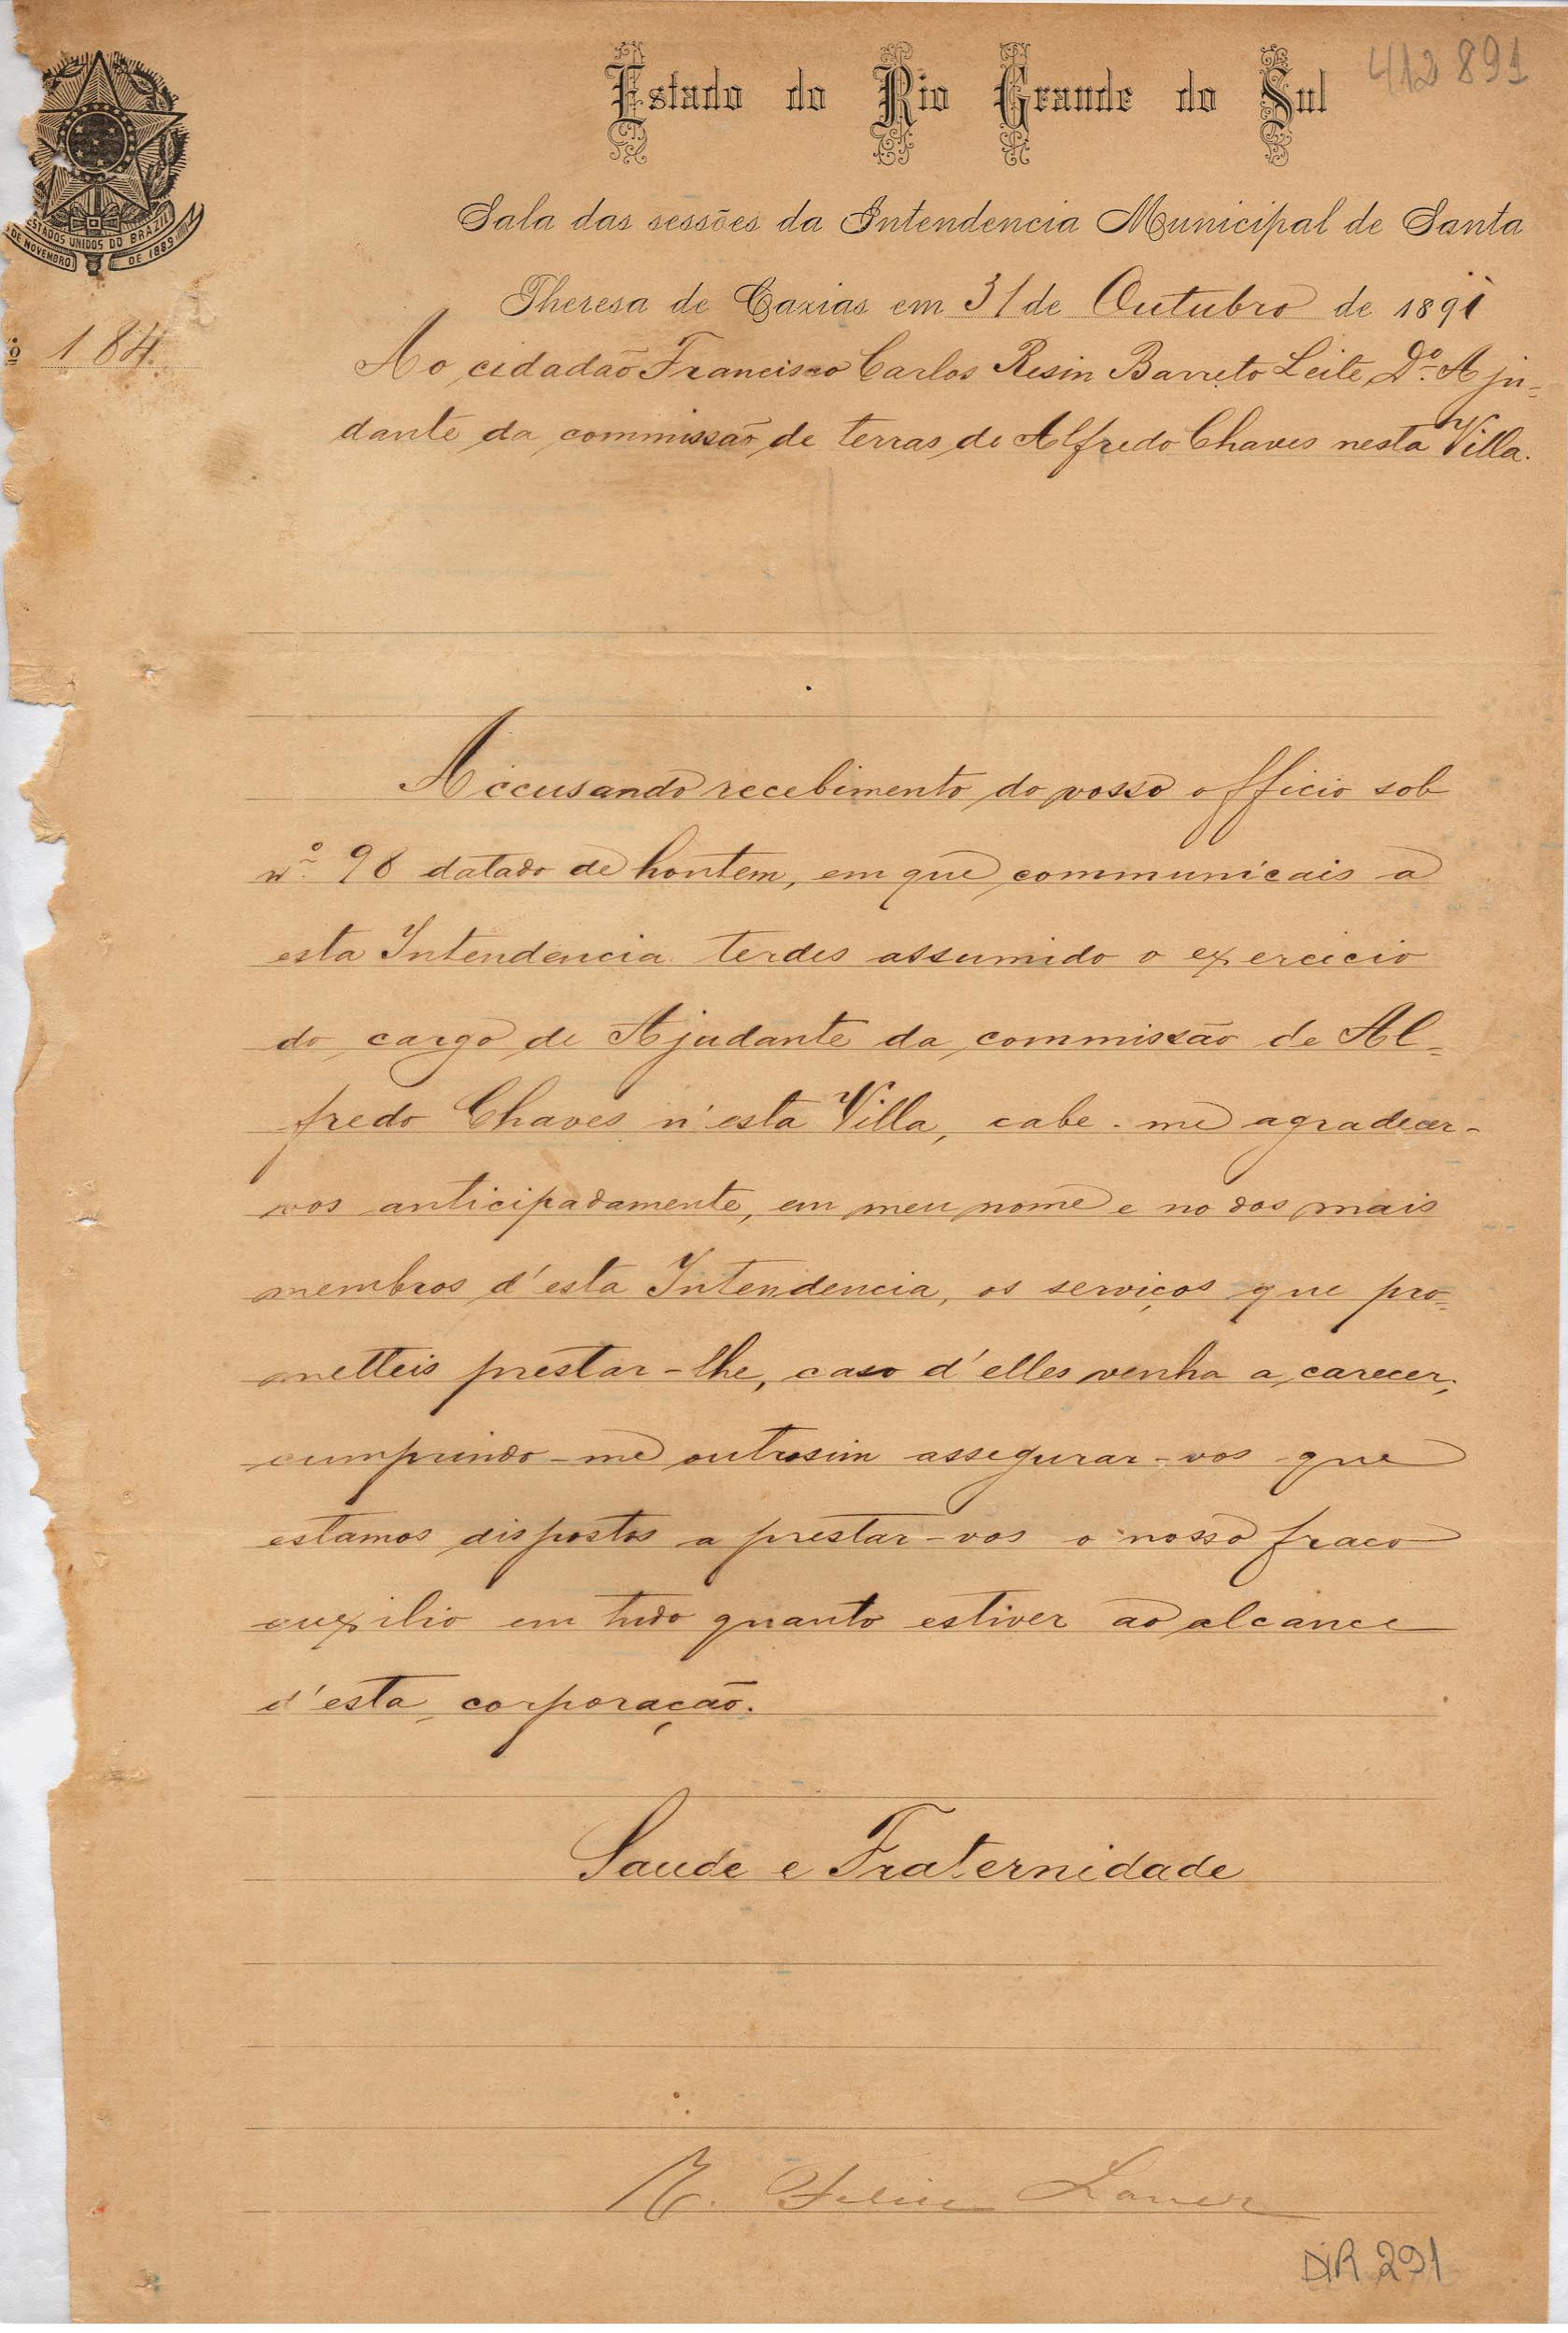 412 891
Estado do Rio Grande do Sul
ESTADOS UNIDOS DO BRAZIL
DE NOVEMBRO DE 1889
Sala das sessões da Intendencia Municipal de Santa
Theresa de Caxias em 31 de Outubro de 1891
º 184
Ao cidadão Francisco Carlos Resin Barreto Leite, Dº Aju=
dante da commissão de terras de Alfredo Chaves nesta Villa.
Accusando recebimento do vosso officio sob
nº 98 datado de hontem, em que communicais a
esta Intendencia terdes assumido o exercicio
do cargo de Ajudante da commissão de Al=
fredo Chaves n'esta Villa, cabe-me agradecer-
vos anticipadamente, em meu nome e no dos mais
membros d'esta Intendencia, os serviços que pro=
metteis prestar-lhe, caso d'elles venha a carecer;
cumprindo-me outrosim assegurar-vos que
estamos dispostos a prestar-vos o nosso fraco
auxilio em tudo quanto estiver ao alcance
d'esta corporação.
Saude e Fraternidade
E. Felice Laner
DIR 291